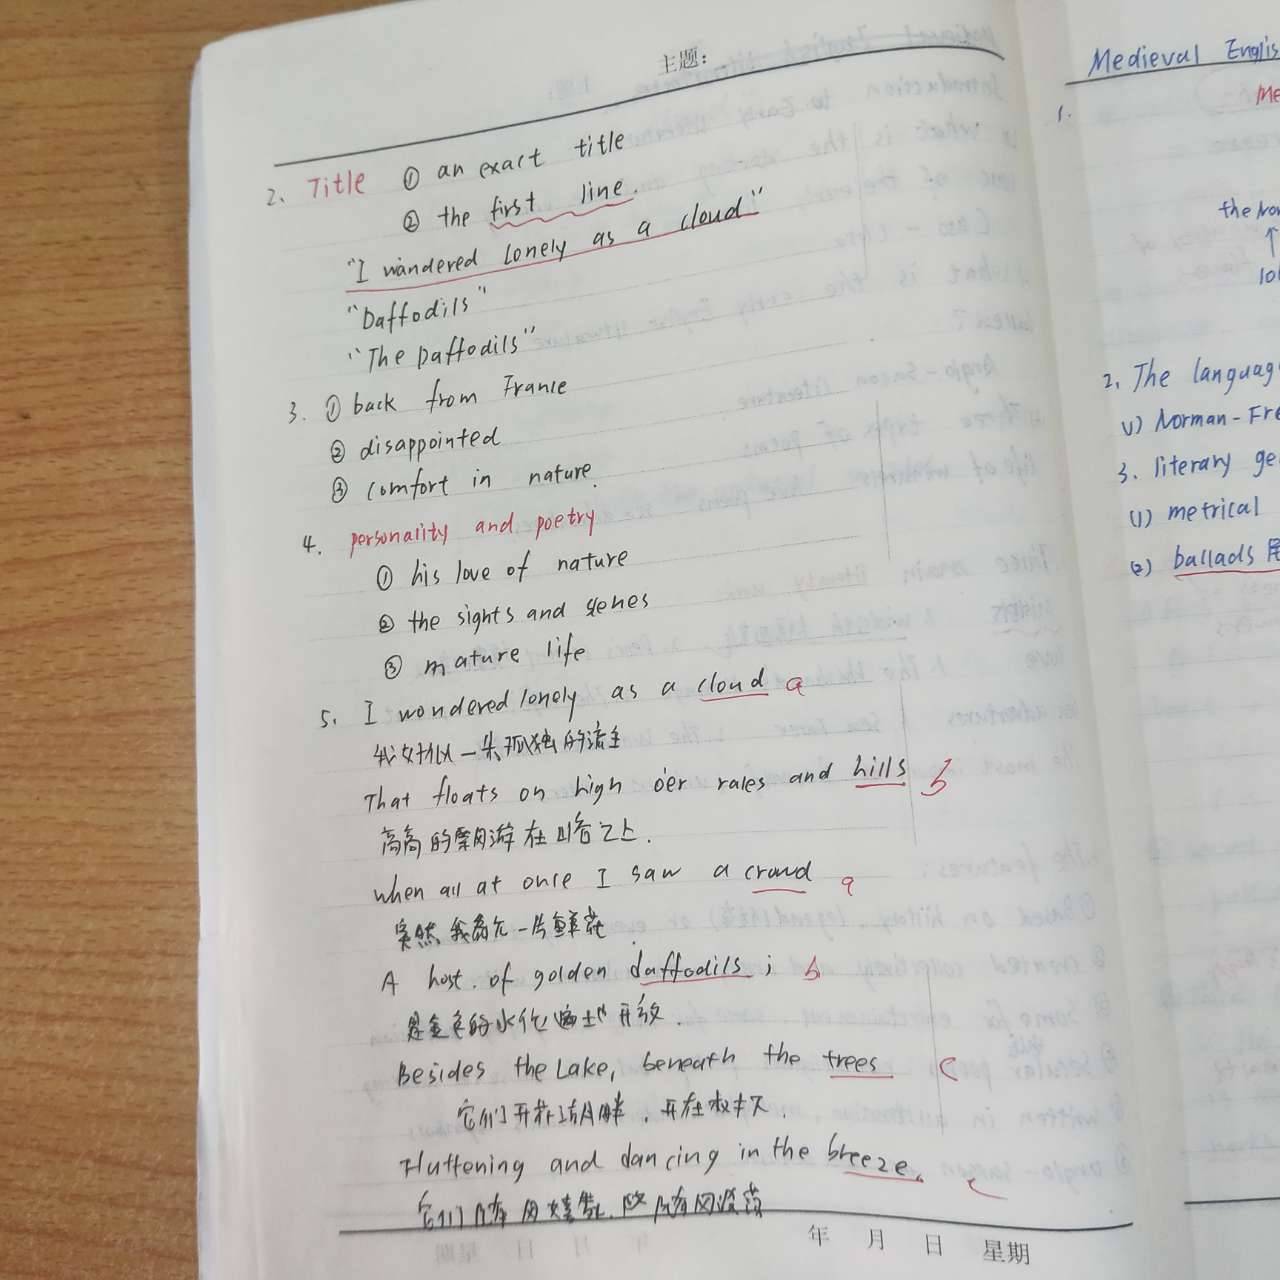 主题:
2. Title ① an exact title
② the first line.
"I wandered lonely as a cloud"
"Daffodils"
"The Daffodils"
3. ① back from France
② disappointed
③ comfort in nature.
4. personality and poetry
① his love of nature
② the sights and scenes
③ mature life
5. I wondered lonely as a cloud a
我好似一朵孤独的流云
That floats on high o'er vales and hills b
高高的飘游在山谷之上.
when all at once I saw a crowd a
突然我看见一片鲜花
A host. of golden daffodils; b
是金色的水仙遍地开放.
Besides the Lake, beneath the trees c
它们开在湖畔. 开在树下.
Fluttening and dancing in the breeze. c
它们随风嬉舞. 随风波荡
年 月 日 星期
Medieval Englis
Me
1.
the Nor
2. The languag
(1) Norman-Fre
3. literary ge
(1) metrical
(2) ballads 民